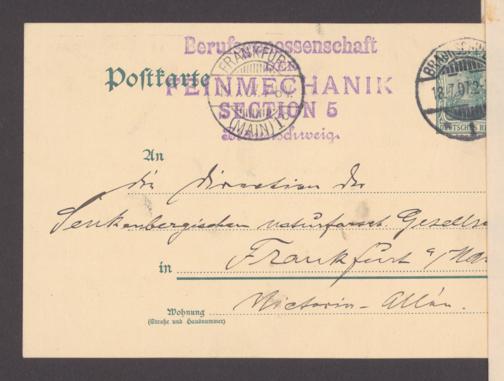 Berufsgenossenschaft
DER
FEINMECHANIK
SECTION 5
Braunschweig.
Postkarte
FRANKFURT
(MAIN) 1
BRAUNSCHW
18.7.07.2-
DEUTSCHES REI
An
die Direction der
Senkenbergischen naturforsch. Gesells
in Frankfurt a/Ma
Victoria-Allée.
Wohnung
(Straße und Hausnummer)